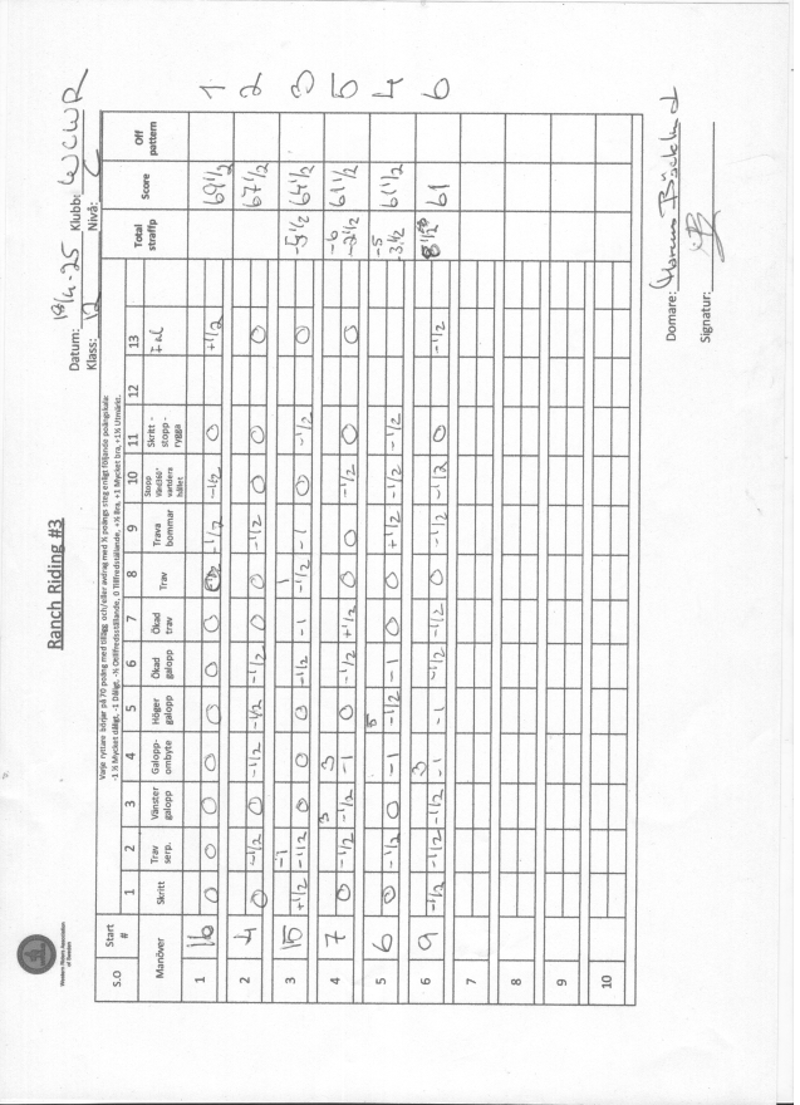 Western Riders Association
of Sweden
Ranch Riding #3
Datum: 18/4-25 Klubb: WCWR
Klass: 12 Nivå: C
Varje ryttare börjar på 70 poäng med tillägg och/eller avdrag med ½ poängs steg enligt följande poängskala:
-1 ½ Mycket dåligt, -1 Dåligt, -½ Otillfredsställande, 0 Tillfredställande, +½ Bra, +1 Mycket bra, +1½ Utmärkt.
S.O Start # 1 2 3 4 5 6 7 8 9 10 11 12 13 Total straffp Score Off pattern
Manöver Skritt Trav serp. Vänster galopp Galopp-ombyte Höger galopp Ökad galopp Ökad trav Trav Trava bommar Stopp Vänd360° vartdera hållet Skritt - stopp - rygga
1 16 0 0 0 0 0 0 0 -1/2 -1/2 0 +1/2 69 1/2 1
2 4 0 -1/2 0 -1/2 -1/2 -1/2 0 0 -1/2 0 0 0 67 1/2 2
-1 1
3 15 +1/2 -1/2 0 0 0 -1/2 -1 -1/2 -1 0 -1/2 0 -5 1/2 64 1/2 3
3 3 -6
4 7 0 -1/2 -1/2 -1 0 -1/2 +1/2 0 0 -1/2 0 0 -2 1/2 61 1/2 5
5 -5
5 6 0 -1/2 0 -1 -1/2 -1 0 0 +1/2 -1/2 -1/2 -3 1/2 61 1/2 4
3
6 9 -1/2 -1/2 -1/2 -1 -1 -1/2 -1/2 0 -1/2 -1/2 0 -1/2 61 6
7
8
9
10
Domare: Marcus Bäcklund
Signatur: